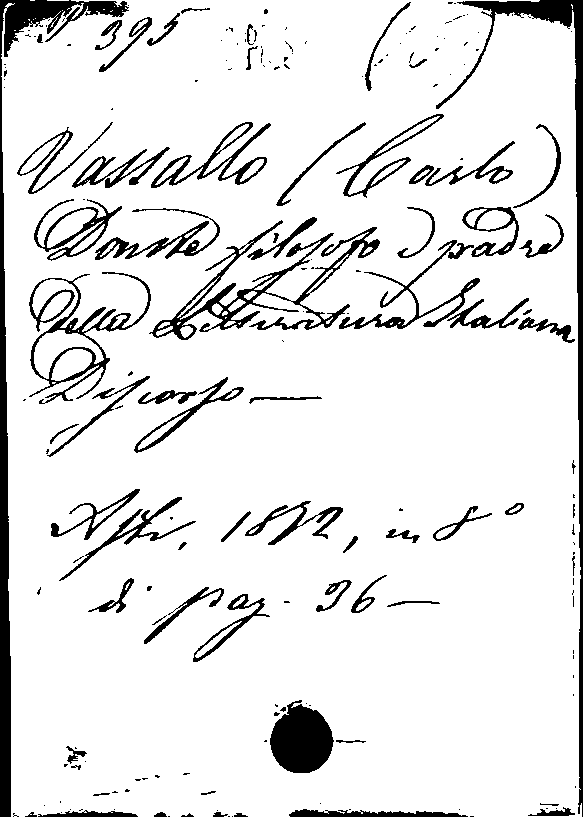 P. 395
Vassallo (Carlo)
Dante filosofo e padre
della Letteratura Italiana
Discorso —
Asti, 1872, in 8°
di pag. 36 —